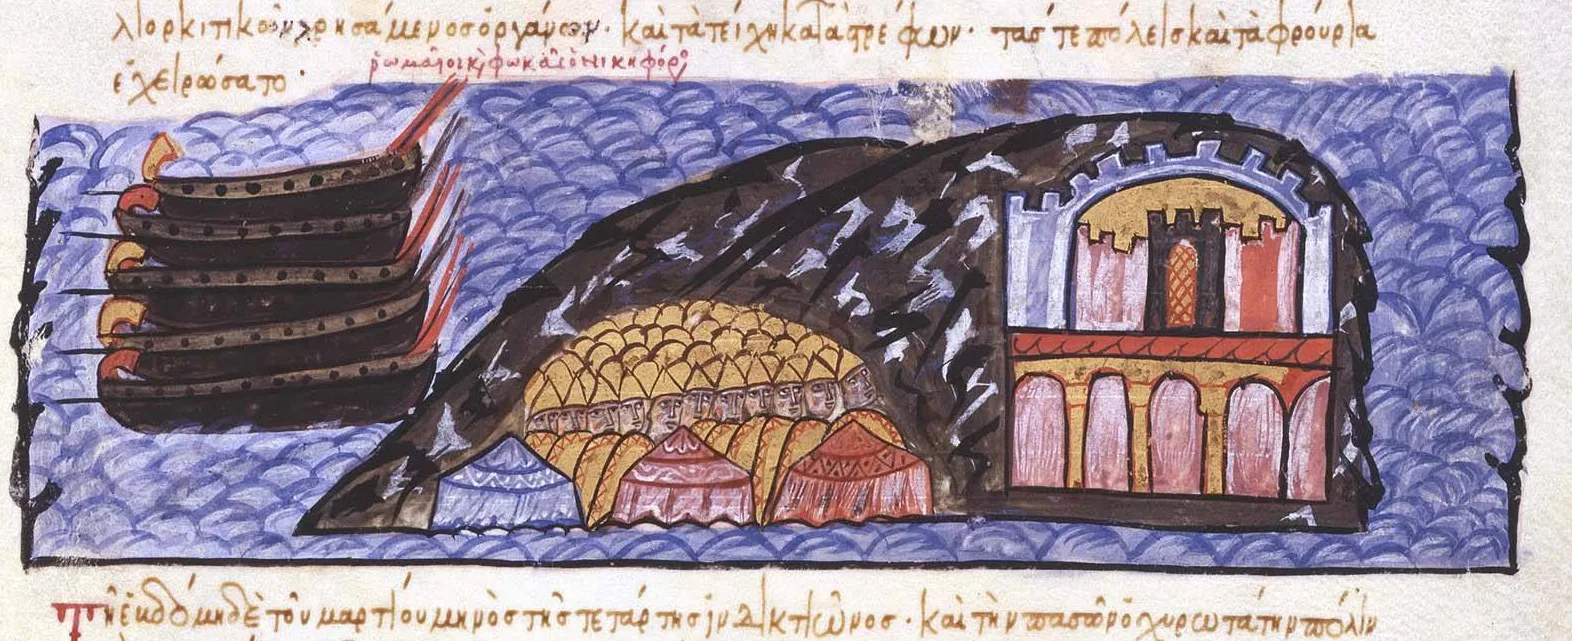 λιορκιτικοῖς χρησάμενος ὀργάνοις· καὶ τὰ τείχη καταστρέφων· τάς τε πόλεις καὶ τὰ φρούρια
ἐχειρώσατο·
ῥωμαῖοι κ φωκᾶς ὁ νικηφόρος
τῇ ἑβδόμῃ δὲ τοῦ μαρτίου μηνὸς τῆς τετάρτης ἰνδικτιῶνος· καὶ τὴν πασῶν ὀχυρωτάτην πόλιν